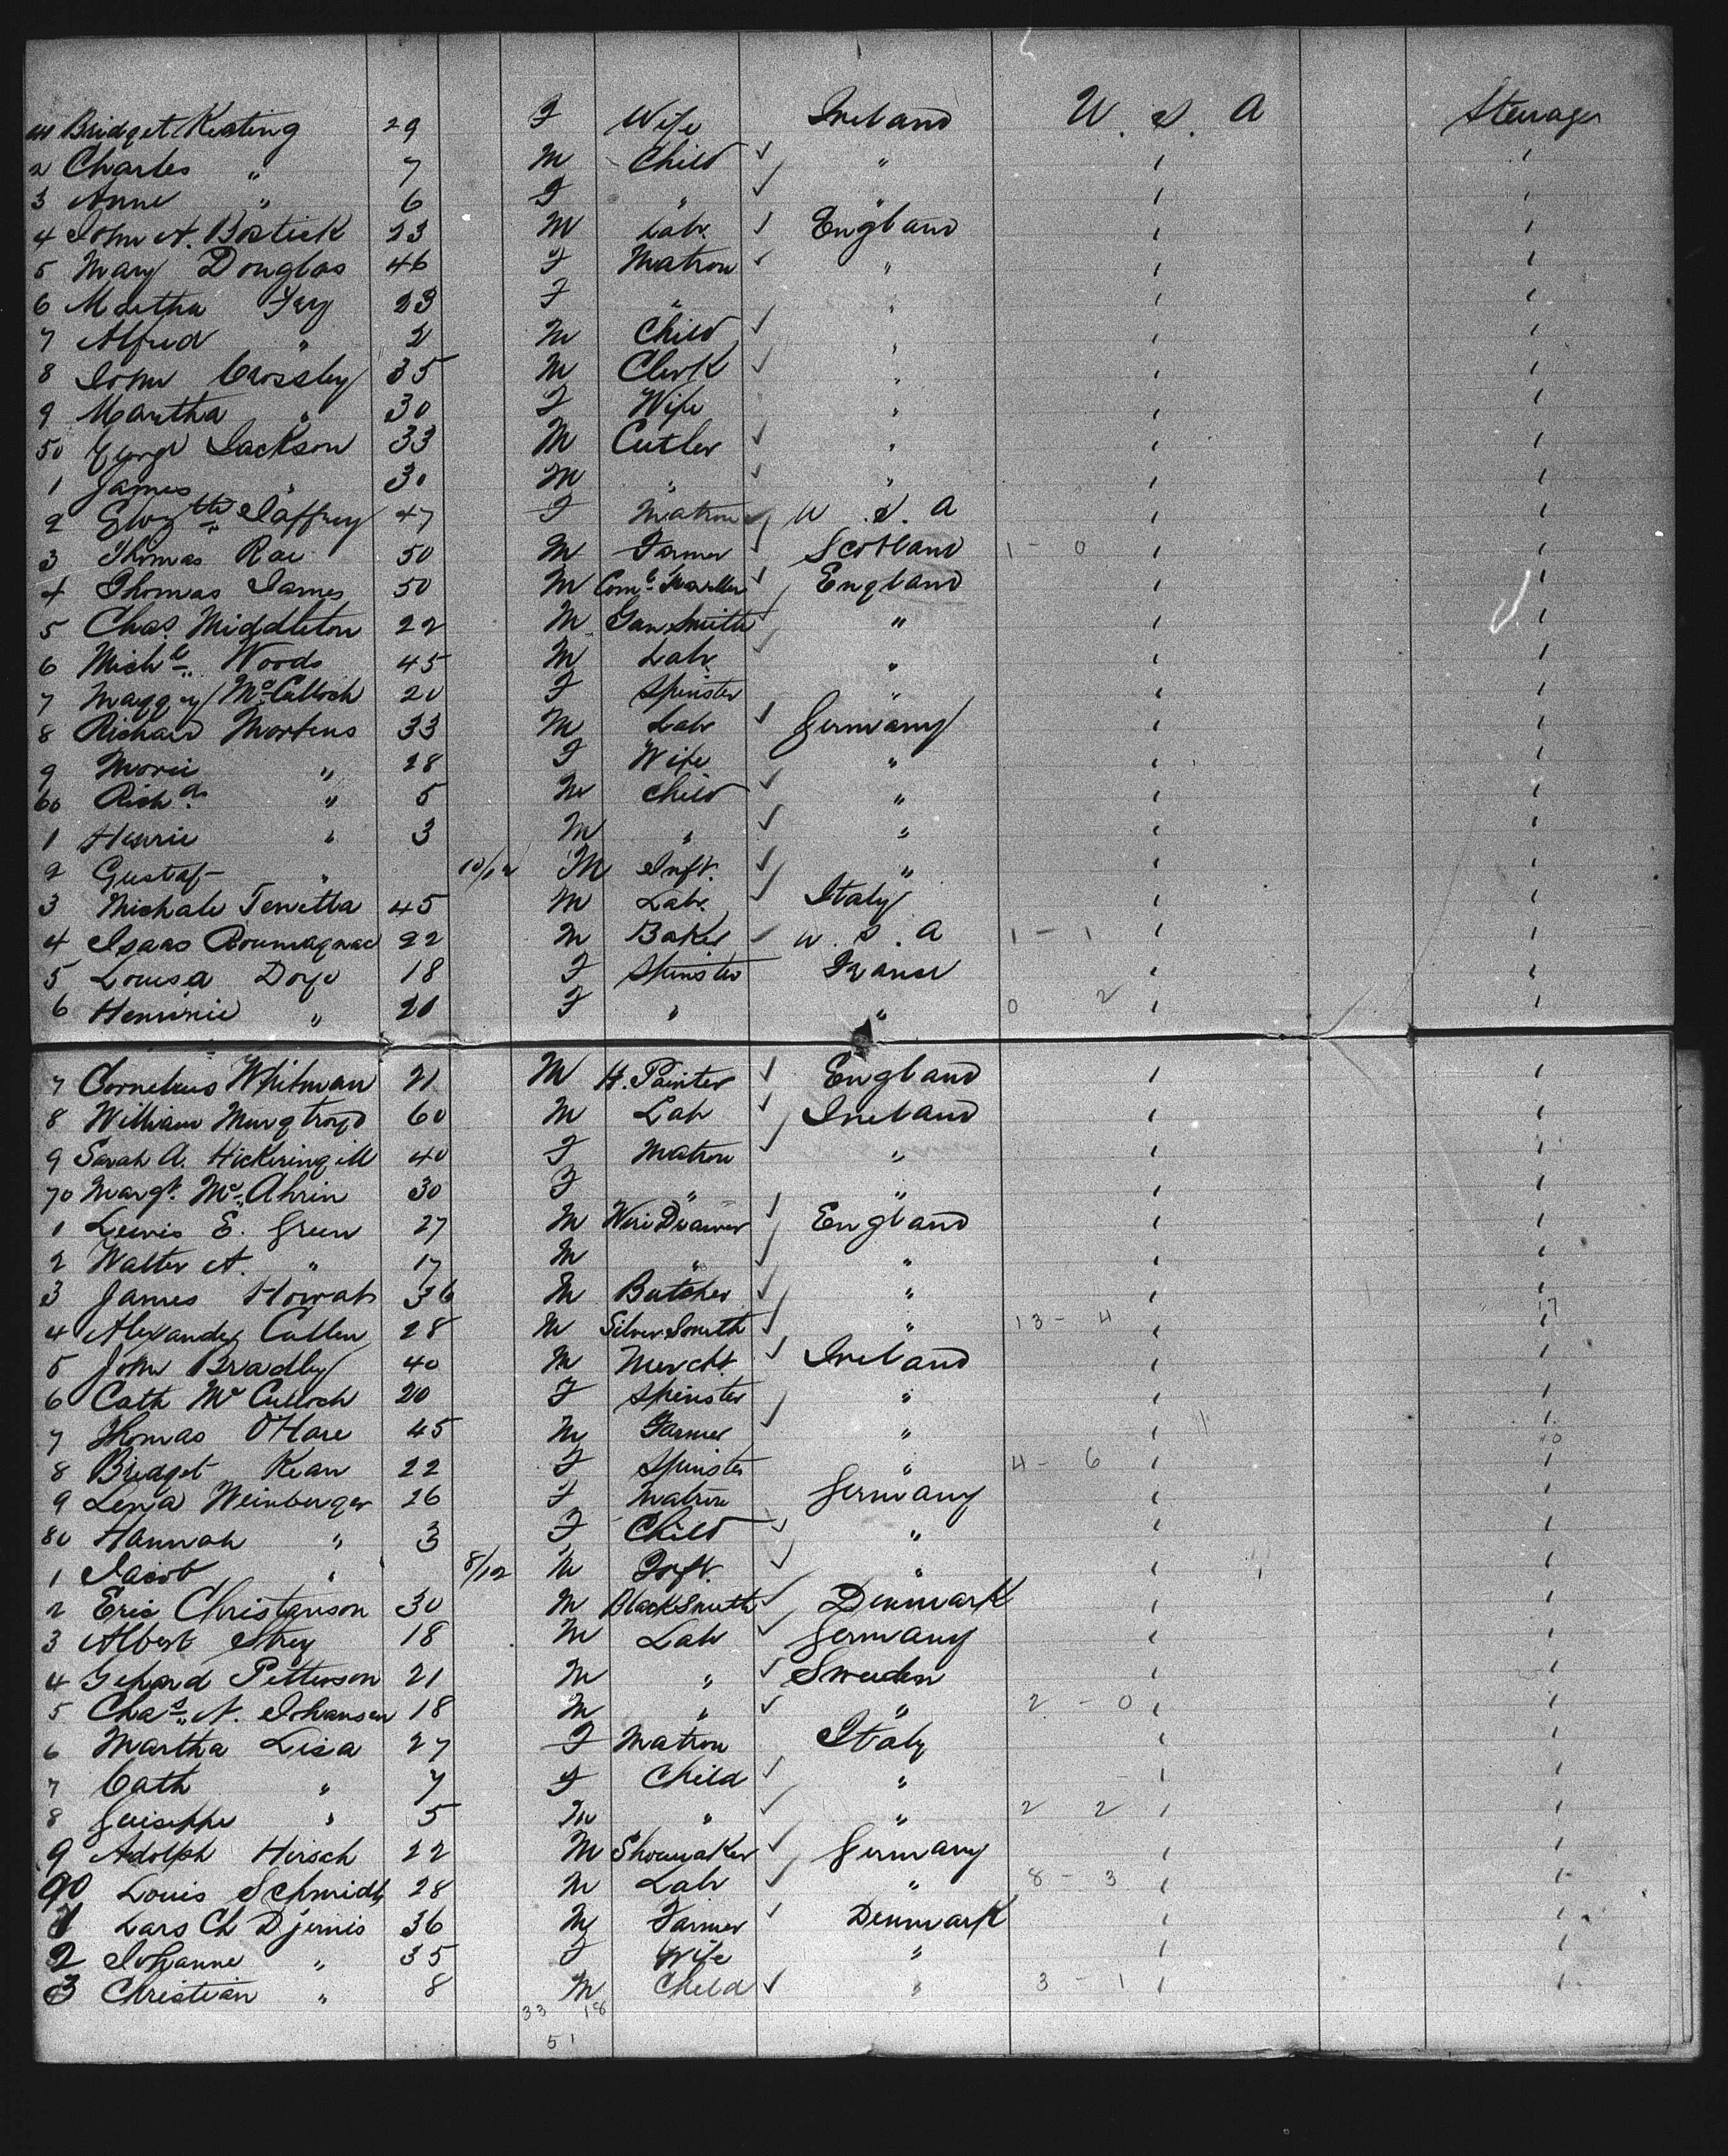 41 Bridget Keating 29 F Wife Ireland U. S. A Steerage
2 Charles " 7 M Child "
3 Anne " 6 F " "
4 John A. Bostick 23 M Labr. England
5 Mary Douglas 46 F Matron "
6 Martha 23 F " "
7 Alfred " 2 M Child "
8 John Crossley 35 M Clerk "
9 Martha " 30 F Wife "
50 George Jackson 33 M Cutler "
1 James " 30 M " "
2 Elizth Jaffrey 47 F Matron U. S. A
3 Thomas Rae 50 M Farmer Scotland 1 - 0
4 Thomas James 50 M Coml. Traveller England
5 Chas. Middleton 22 M Gun Smith "
6 Michl. Woods 45 M Labr. "
7 Maggy McCulloch 20 F Spinster "
8 Richard Mortens 33 M Labr Germany
9 Marie " 28 F Wife "
60 Richd. " 5 M Child "
1 Henrie " 3 M " "
2 Gustaf " 10/12 M Inft. "
3 Michale 45 M Labr. Italy
4 Isaac 22 M Baker U. S. A 1 - 1
5 Louisa Doye 18 F Spinster France
6 Heminie " 20 F " " 0 2
7 Cornelius Whitman 21 M H. Painter England
8 William Murgtroyd 60 M Labr Ireland
9 Sarah A. Hickeringill 40 F Matron "
70 Margt. Mc Ahrin 30 F " "
1 Lewis E. Green 27 M Wire Drawer England
2 Walter A. " 17 M " "
3 James Howat 36 M Butcher "
4 Alexander Cullen 28 M Silver Smith " 13 - 4 17
5 John Bradley 40 M Mercht. Ireland
6 Cath Mc Culloch 20 F Spinster "
7 Thomas OHare 45 M Farmer "
8 Bridget Kean 22 F Spinster " 4 - 6 10
9 Lena Weinberger 26 F Matron Germany
80 Hannah " 3 F Child "
1 Jacob " 8/12 M Inft. "
2 Eric Christanson 30 M BlackSmith Denmark
3 Albert Strey 18 M Labr Germany
4 Gehard Petterson 21 M " Sweden
5 Chas. A. Johansen 18 M " " 2 - 0
6 Martha Lisa 27 F Matron Italy
7 Cath " 7 F Child "
8 Guiseppe " 5 M " " 2 2
9 Adolph Hirsch 22 M Shoemaker Germany
90 Louis Schmidt 28 M Labr " 8 - 3
1 Lars Ch Djernis 36 M Farmer Denmark
2 Johanne " 35 F Wife "
3 Christian " 8 M Child " 3 - 1
33 18
51